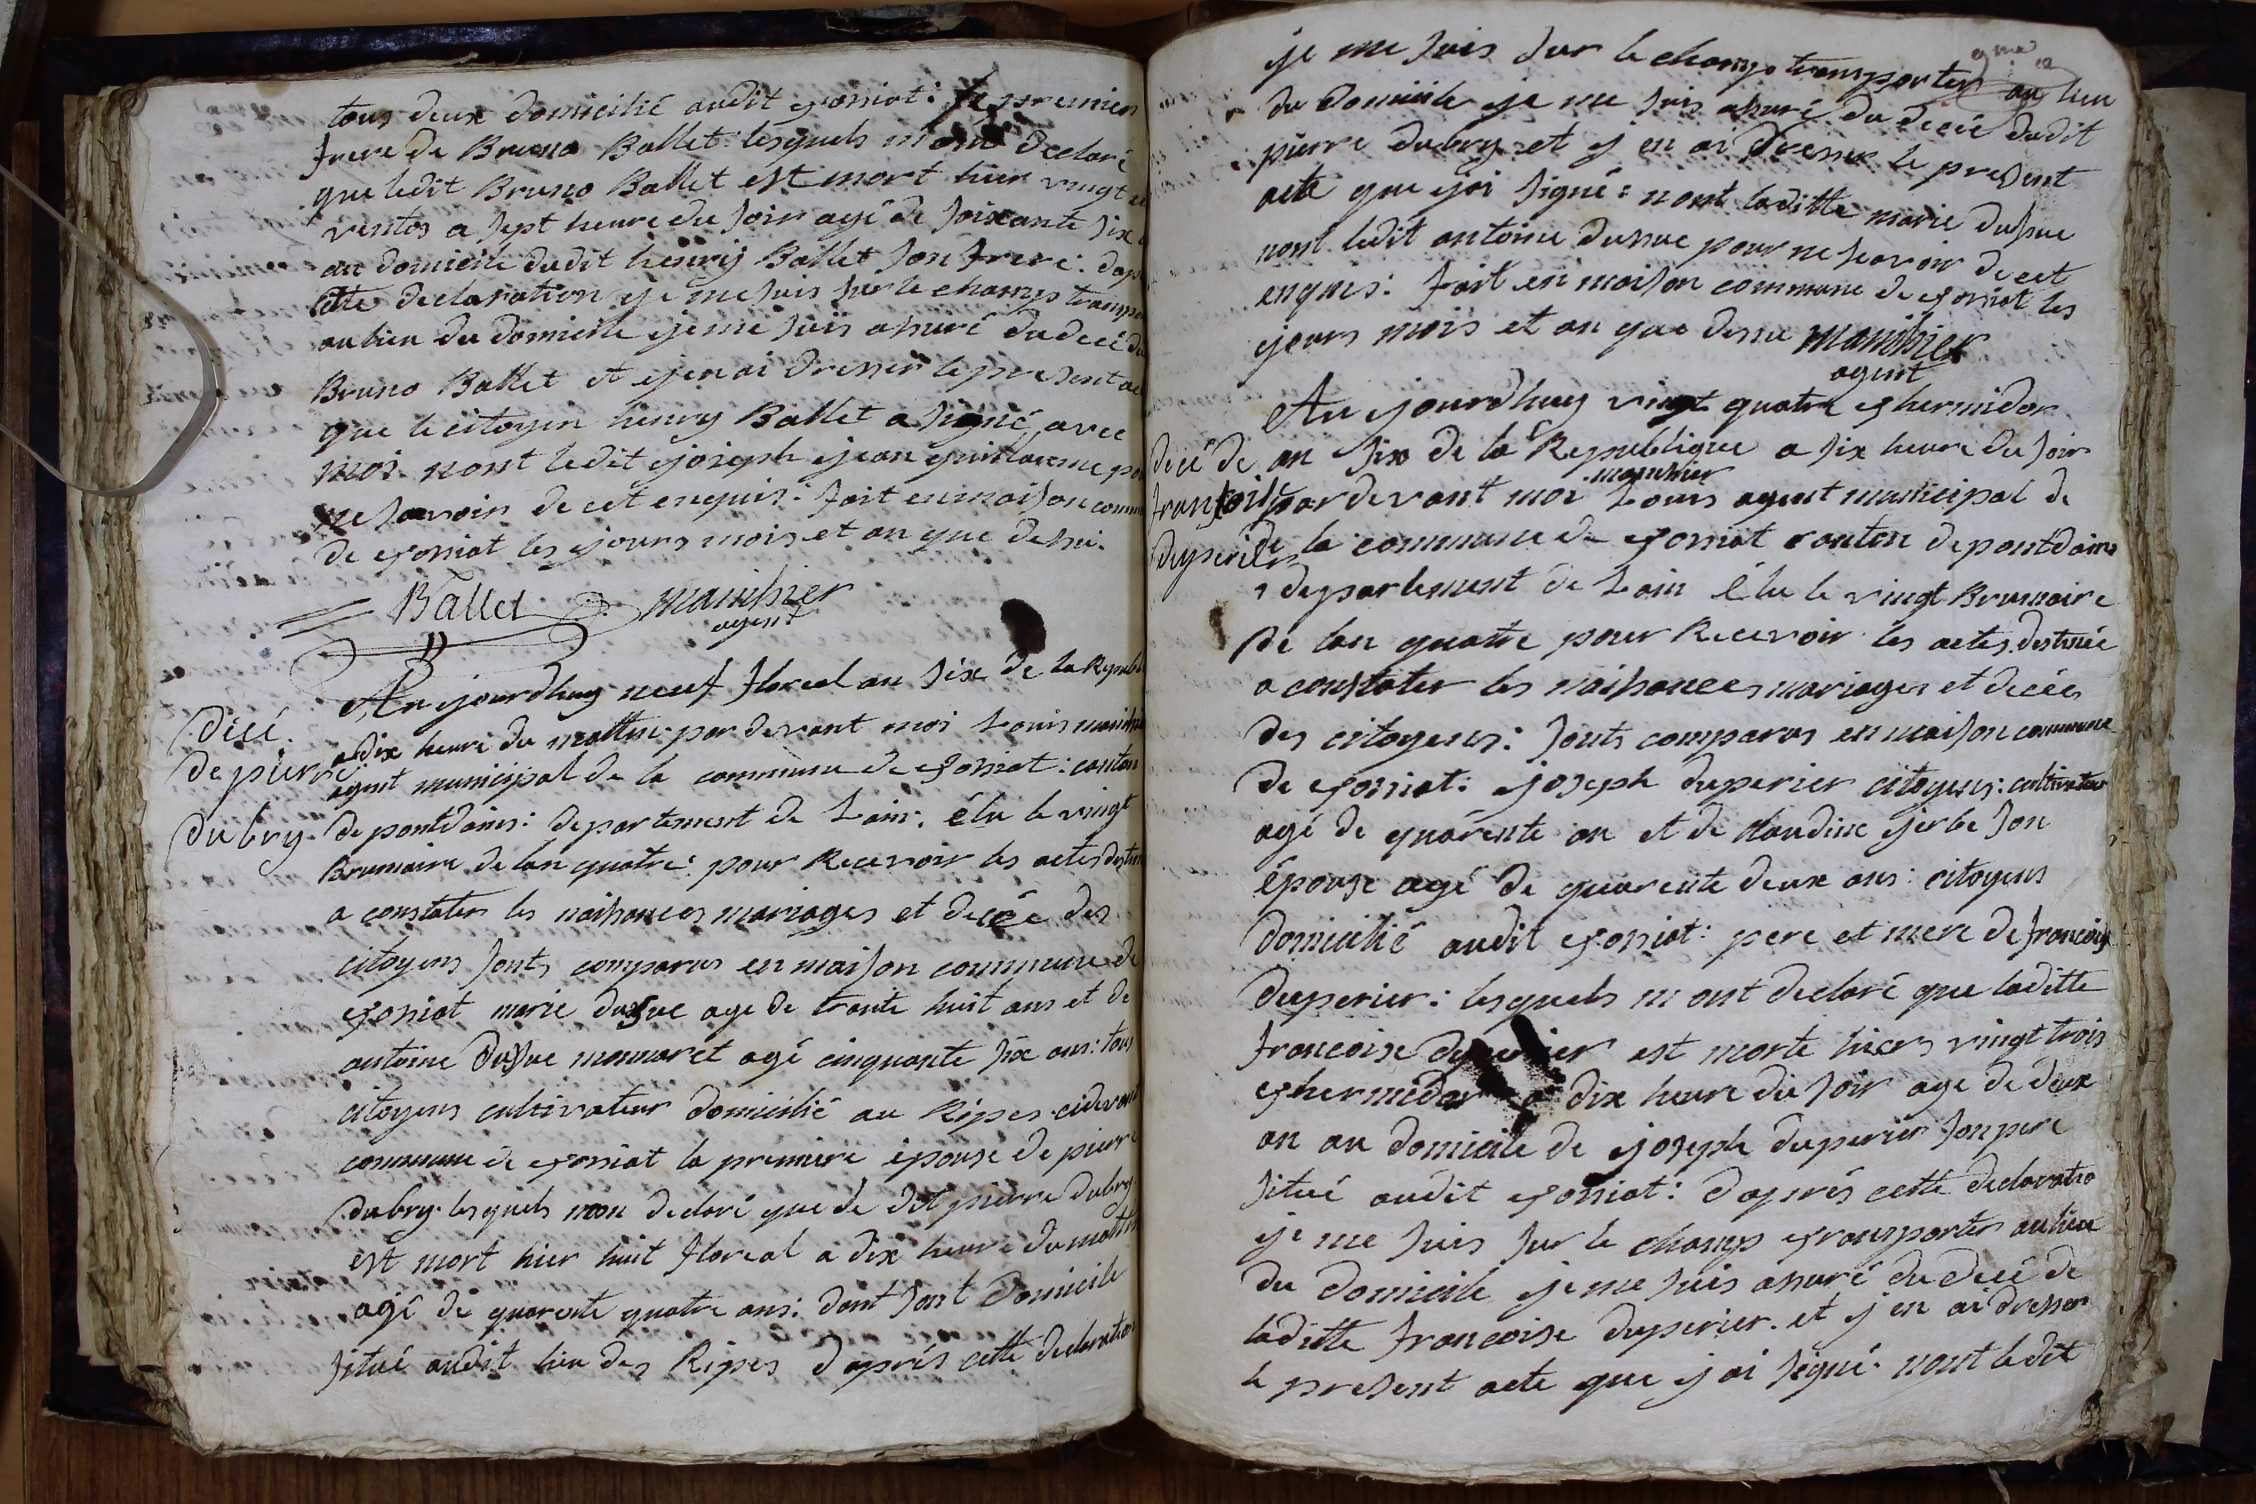 tous deux domicilié audit jossiat: le premier
frere de Bruno Ballet: lesquels mont declaré
que ledit Bruno Ballet est mort hier vingt
ventos a sept heure du soir agé de soixante six
au domicile dudit henry Ballet son frere: dap
cette declaration je me suis sur le champs transpo
au lieu du domicile je me suis assuré du decé du
Bruno Ballet et jen ai dresser le present ac
que le citoyen henry Ballet a signé, avec
moi nont ledit joseph jean guillaeme po
ne savoir de cet enquis: fait en maison comm
de jossiat les jours mois et an que dessu.
Ballet manihier
agent
Au jourdhuy neuf floreal an six de la Republi
Décé.
a dix heure du mattin par devant moi Louis manihi
de pierre
agent municipal de la commune de jossiat: canton
dubry.
de pontdains: departement de Lain. élu le vingt
Brumaire de lan quatre: pour Recevoir les actes destin
a constater les naissances mariages et decée des
citoyens sonts comparus en maison commune de
jossiat marie dussue age de trante huit ans et de
antoine dussue monnaret agé cinquante six ans: tous
citoyens cultivateur domicilié au Ripes cidevant
commune de jossiat la premiere épouse de pierre
dubry. lesquels mon declaré que le dit pierre dubry
est mort hier huit floreal a dix heure du mattin
agé de quarente quatre ans: dont sont domicile
situé audit lieu des Ripes daprés cette declaration
je me suis sur le champs transporter au lieu
du domicile je me suis assuré du decée dudit
pierre dubry et j en ai dresser le present
acte que jai signé: nont laditte marie dussue
nont ledit antoine dussue pour ne seavoir de cet
enquis: fait en maison commune de jossiat les
jours mois et an que dessu manihier
agent
Au jourdhuy vingt quatre thermidor
decé de an six de la Republique a six heure du soir
manihier
francoise par devant moi Louis agent municipal de
duperier de la commune de jossiat canton de pontdains
departement de Lain élu le vingt Brumaire
de lan quatre pour Recevoir les actes destinée
a constater les naissances mariages et decées
des citoyens: sonts comparus en maison commune
de jossiat: joseph duperier citoyens: cultivateur
agé de quarente an et de claudine jerbe son
épouse agé de quarente deux ans: citoyens
domicilié audit jossiat: pere et mere de francoise
duperier: lesquels m ont declaré que laditte
francoise duperier est morte hiers vingt trois
thermidor a dix heure du soir age de deux
an au domicile de joseph duperier son pere
situé audit jossiat: daprés cette declaratio
je me suis sur le champ transporter au lieu
du domicile je me suis assuré du decé de
laditte francoise duperier. et j en ai dresser
le present acte que j ai signé. nont ledit